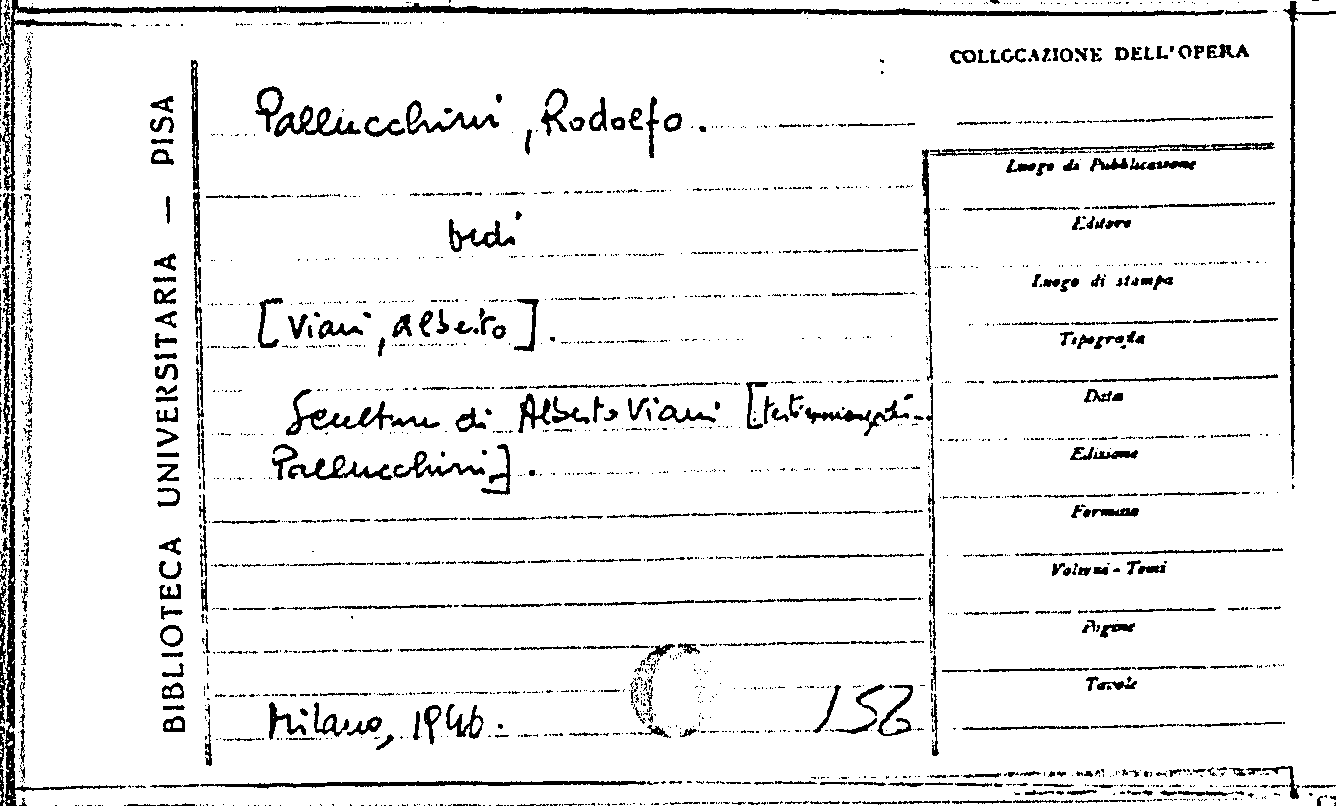 COLLOCAZIONE DELL'OPERA
BIBLIOTECA UNIVERSITARIA — PISA
Pallucchini, Rodolfo.
vedi
[Viani, Alberto].
Sculture di Alberto Viani
Pallucchini].
Milano, 1946.
Luogo di Pubblicazione
Editore
Luogo di stampa
Tipografia
Data
Edizione
Formato
Volumi - Tomi
Pagine
Tavole